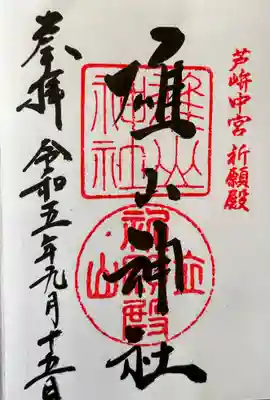 芦峅中宮 祈願殿
雄山神社
奉拝
令和五年九月十五日
雄山神社
立山祈願殿